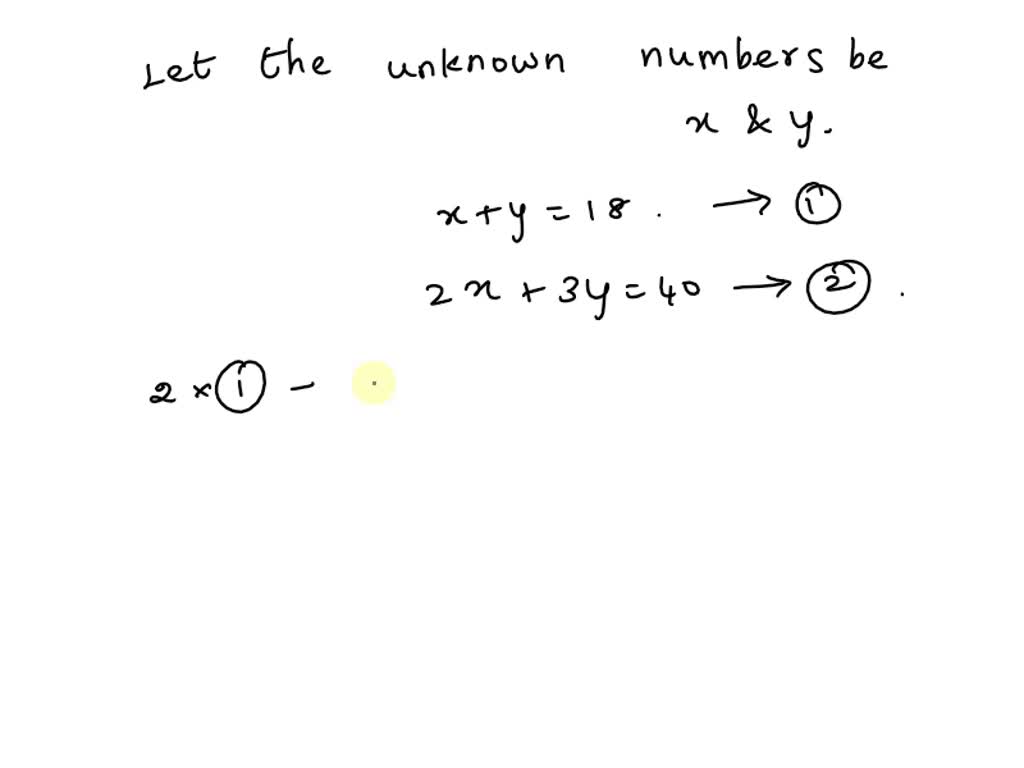 Let the unknown numbers be
x & y.
x + y = 18 . → ①
2x + 3y = 40 → ② .
2 × ① –